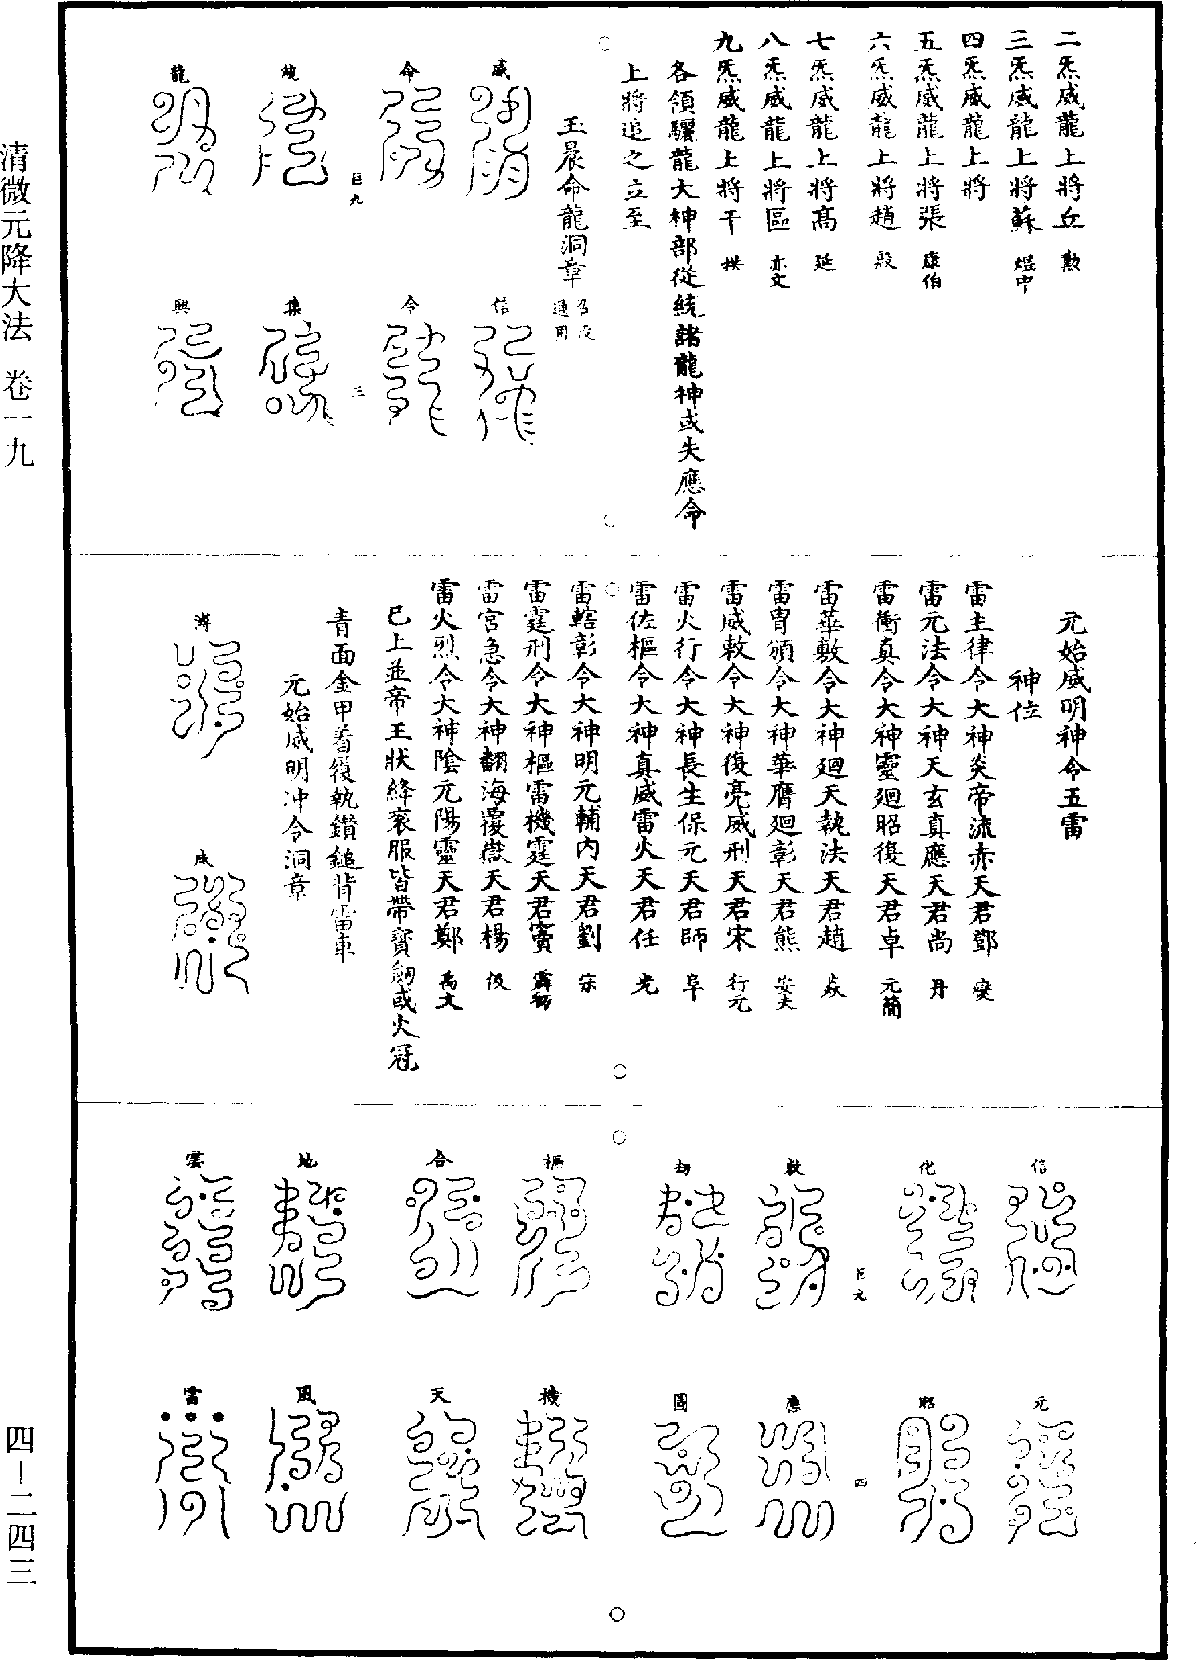 清微元降大法 卷一九
四-二四三
二炁威龍上將丘 勲
三炁威龍上將蘇 焜中
四炁威龍上將
五炁威龍上將張 康伯
六炁威龍上將趙
七炁威龍上將高 延
八炁威龍上將區 亦文
九炁威龍上將干 拱
各領驪龍大神部從統諸龍神或失應命
上將追之立至
玉晨命龍洞章
通用
威
信
命
令
巨九
三
統
集
龍
興
元始威明神令五雷
神位
雷主律令大神炎帝流赤天君鄧 燮
雷元法令大神天玄真應天君尚 丹
雷衝真令大神靈廻昭復天君卓 元簡
雷華敷令大神廻天執法天君趙 焱
雷胄頒令大神華膺廻彰天君熊 安夫
雷威敕令大神復亮威刑天君宋 行元
雷火行令大神長生保元天君師 阜
雷佐樞令大神真威雷火天君任 光
雷轄彰令大神明元輔內天君劉 宗
雷霆刑令大神樞雷機霆天君竇
雷宮急令大神翻海覆嶽天君楊 伋
雷火烈令大神陰元陽靈天君鄭 禹文
巳上並帝王狀絳衮服皆帶寶劒或火冠
青面金甲着履執鑽鎚背雷車
元始威明冲令洞章
溥
咸
信
元
化
昭
四
敕
應
劫
圖
樞
機
合
天
地
風
雲
雷